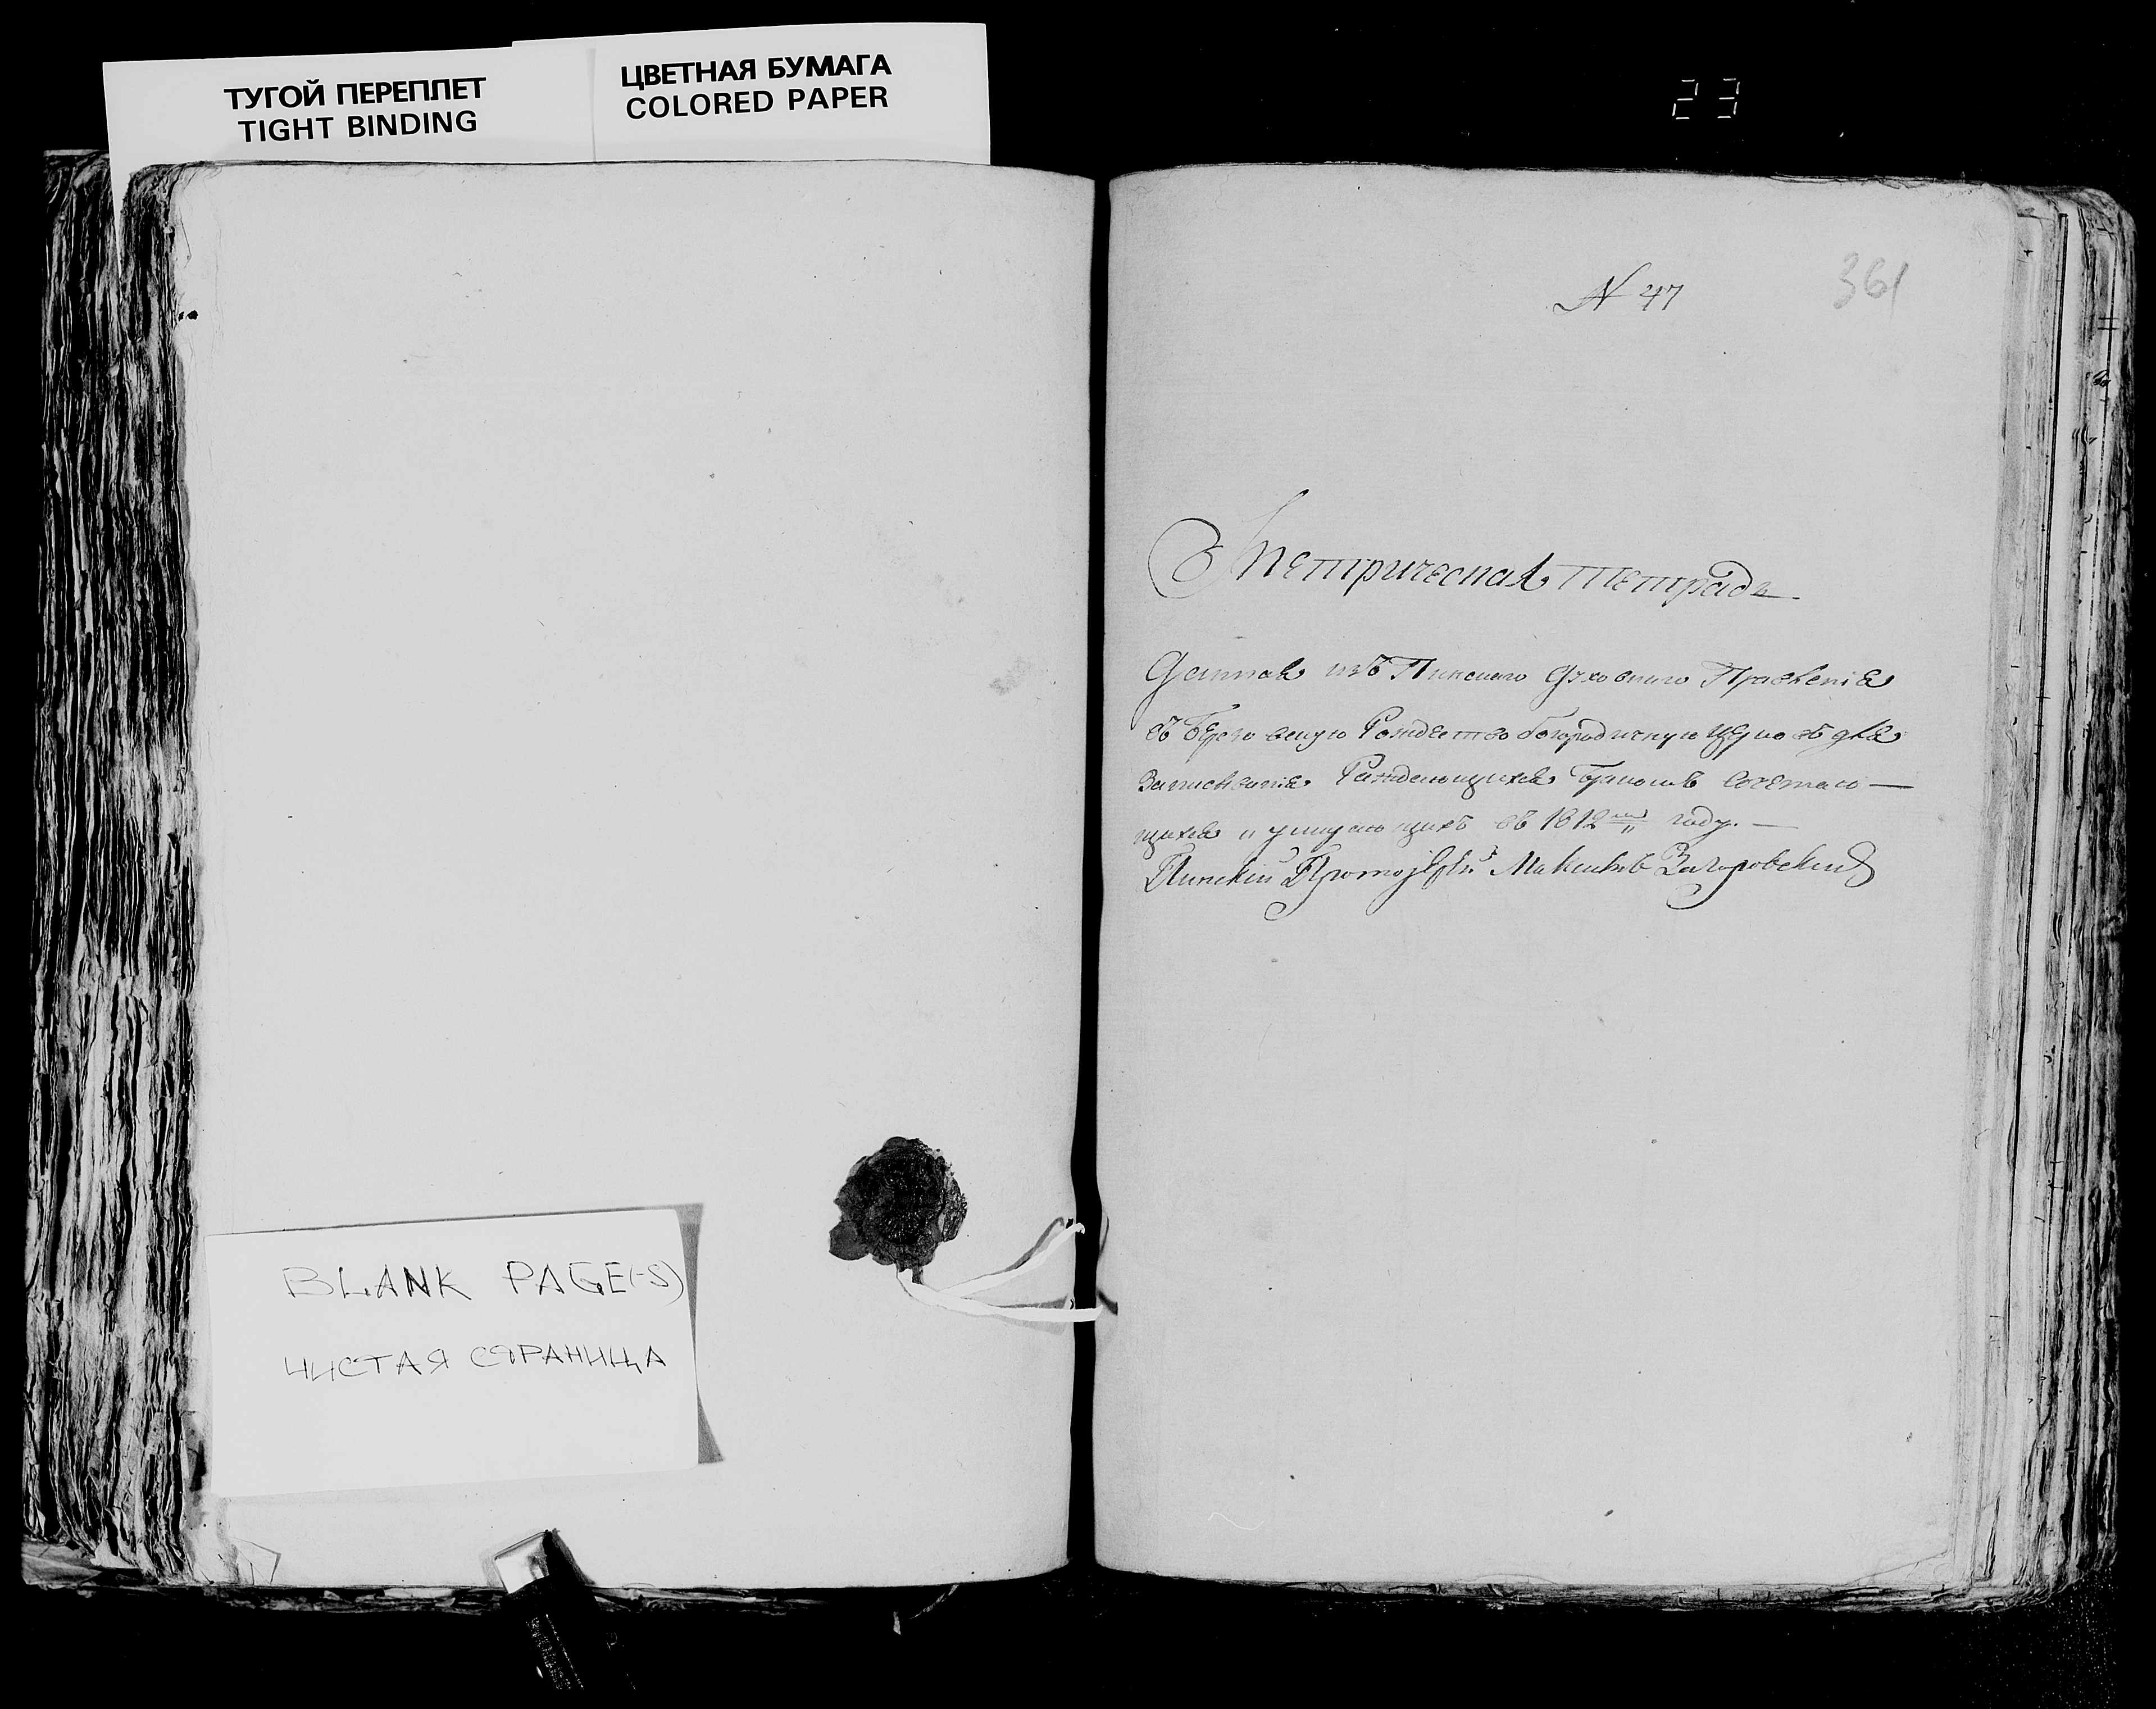 ТУГОЙ ПЕРЕПЛЕТ
TIGHT BINDING
ЦВЕТНАЯ БУМАГА
COLORED PAPER
23
N 47
361
Метрическая тетрадь
Данная изъ Пинскаго Духовнаго Правленія
въ Бережновскую Рождество Богородичную Церковь для
Записыванія Раждающихся бракомъ Сочетаю—
щихся и умирающихъ въ 1812м году.—
Пинскій Протоіерей Максимъ Загоровскій
BLANK PAGE(-S)
ЧИСТАЯ СТРАНИЦА